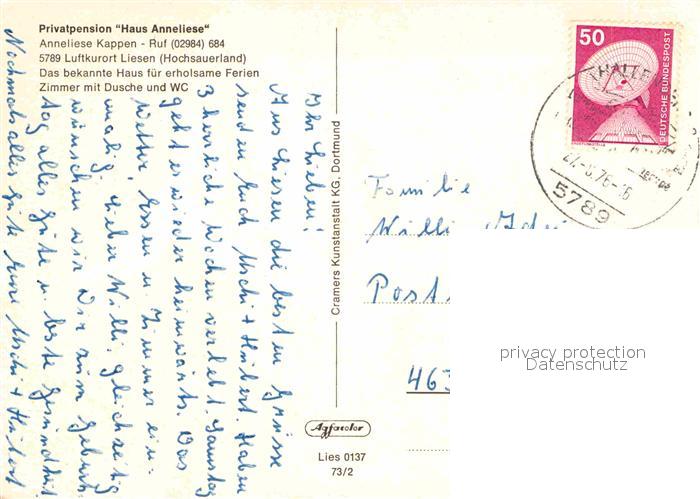 Privatpension "Haus Anneliese"
Anneliese Kappen - Ruf (02984) 684
5789 Luftkurort Liesen (Hochsauerland)
Das bekannte Haus für erholsame Ferien
Zimmer mit Dusche und WC
Ihr Lieben!
Aus Liesen die besten Grüsse
senden Euch Uschi + Hubert. Haben
3 herrliche Wochen verlebt. Samstag
geht es wieder heimwärts. Das
Wetter, Essen u. Zimmer ein-
malig. Lieber Willi, gleichzeitig
wünschen wir Dir zum Geburts-
tag alles Gute u. beste Gesundheit
Nochmals alles Gute Eure Uschi + Hubert
Cramers Kunstanstalt KG. Dortmund
50
DEUTSCHE BUNDESPOST
5789
Familie
Willi
Post
463
privacy protection
Datenschutz
Agfacolor
Lies 0137
73/2